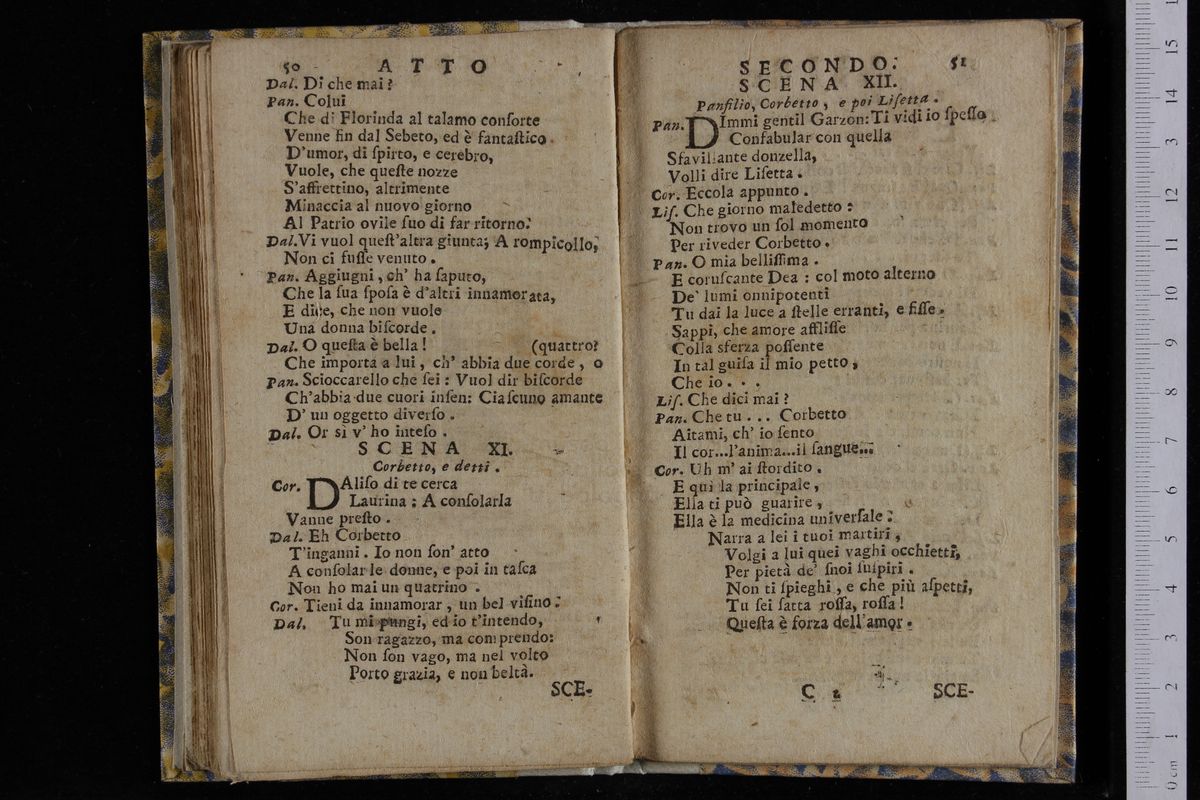 50 ATTO
Dal. Di che mai?
Pan. Colui
Che di Florinda al talamo conſorte
Venne fin dal Sebeto, ed è fantaſtico.
D'umor, di ſpirto, e cerebro,
Vuole, che queſte nozze
S'affrettino, altrimente
Minaccia al nuovo giorno
Al Patrio ovile ſuo di far ritorno.
Dal. Vi vuol queſt'altra giunta; A rompicollo,
Non ci fuſſe venuto.
Pan. Aggiugni, ch' ha ſaputo,
Che la ſua ſpoſa è d'altri innamorata,
E dice, che non vuole
Una donna biſcorde.
Dal. O queſta è bella! (quattro?
Che importa a lui, ch' abbia due corde, o
Pan. Scioccarello che ſei: Vuol dir biſcorde
Ch'abbia due cuori inſen: Ciaſcuno amante
D' un oggetto diverſo.
Dal. Or sì v' ho inteſo.
SCENA XI.
Corbetto, e detti.
Cor. DAliſo di te cerca
Laurina: A conſolarla
Vanne preſto.
Dal. Eh Corbetto
T'inganni. Io non ſon' atto
A conſolar le donne, e poi in taſca
Non ho mai un quatrino.
Cor. Tieni da innamorar, un bel viſino.
Dal. Tu mi pungi, ed io t'intendo,
Son ragazzo, ma comprendo:
Non ſon vago, ma nel volto
Porto grazia, e non beltà.
SCE-
SECONDO. 51
SCENA XII.
Panfilio, Corbetto, e poi Liſetta.
Pan. DImmi gentil Garzon: Ti vidi io ſpeſſo
Confabular con quella
Sfavillante donzella,
Volli dire Liſetta.
Cor. Eccola appunto.
Liſ. Che giorno maledetto:
Non trovo un ſol momento
Per riveder Corbetto.
Pan. O mia belliſſima.
E coruſcante Dea: col moto alterno
De' lumi onnipotenti
Tu dai la luce a ſtelle erranti, e fiſſe.
Sappi, che amore affliſſe
Colla sferza poſſente
In tal guiſa il mio petto,
Che io...
Liſ. Che dici mai?
Pan. Che tu... Corbetto
Aitami, ch' io ſento
Il cor...l'anima...il ſangue...
Cor. Uh m' ai ſtordito.
E qui la principale,
Ella ti può guarire,
Ella è la medicina univerſale:
Narra a lei i tuoi martiri,
Volgi a lui quei vaghi occhietti,
Per pietà de' ſuoi ſuſpiri.
Non ti ſpieghi, e che più aſpetti,
Tu ſei fatta roſſa, roſſa!
Queſta è forza dell'amor.
C 2 SCE-